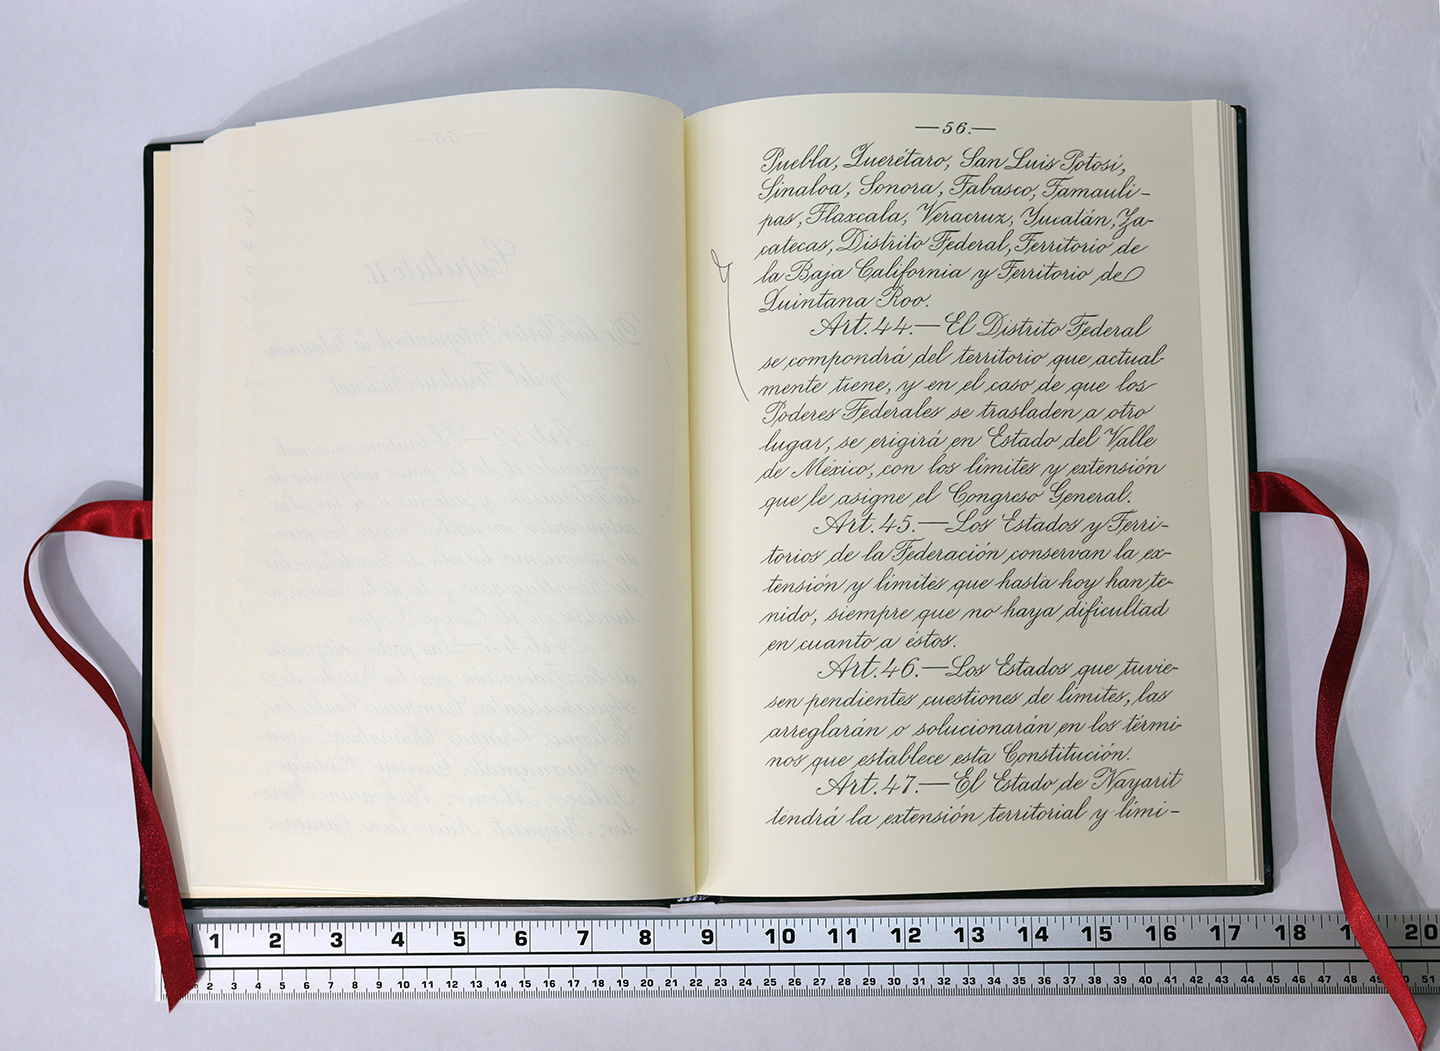 —56.—
Puebla, Querétaro, San Luis Potosí,
Sinaloa, Sonora, Tabasco, Tamauli-
pas, Tlaxcala, Veracruz, Yucatán, Za-
catecas, Distrito Federal, Territorio de
la Baja California y Territorio de
Quintana Roo.
Art. 44.— El Distrito Federal
se compondrá del territorio que actual-
mente tiene, y en el caso de que los
Poderes Federales se trasladen a otro
lugar, se erigirá en Estado del Valle
de México, con los límites y extensión
que le asigne el Congreso General.
Art. 45.— Los Estados y Terri-
torios de la Federación conservan la ex-
tensión y límites que hasta hoy han te-
nido, siempre que no haya dificultad
en cuanto a éstos.
Art. 46.— Los Estados que tuvie-
sen pendientes cuestiones de límites, las
arreglarán o solucionarán en los térmi-
nos que establece esta Constitución.
Art. 47.— El Estado de Nayarit
tendrá la extensión territorial y lími-
1 2 3 4 5 6 7 8 9 10 11 12 13 14 15 16 17 18 20
2 3 4 5 6 7 8 9 10 11 12 13 14 15 16 17 18 19 20 21 22 23 24 25 26 27 28 29 30 31 32 33 34 35 36 37 38 39 40 41 42 43 44 45 46 47 48 49 50 51